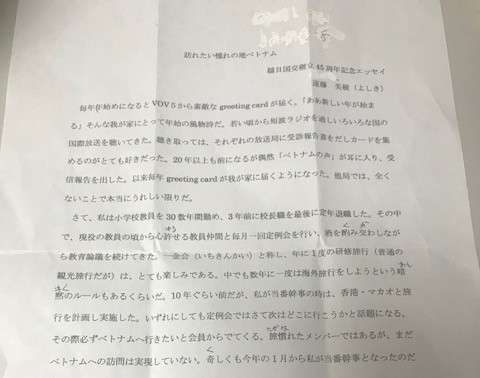 訪れたい憧れの地ベトナム
越日国交樹立45周年記念エッセイ
遠藤 美樹（よしき）
毎年年始めになるとVOV5から素敵なgreeting cardが届く。「ああ新しい年が始ま
る」そんな我が家にとって年始の風物詩だ。若い頃から短波ラジオを通しいろいろな国の
国際放送を聴いてきた。聴き取っては、それぞれの放送局に受診報告書をだしカードを集
めるのがとても好きだった。20年以上も前になるが偶然「ベトナムの声」が耳に入り、受
信報告を出した。以来毎年greeting cardが我が家に届くようになった。他局では、全く
ないことで本当にうれしい限りだ。
さて、私は小学校教員を30数年間勤め、3年前に校長職を最後に定年退職した。その中
で、現役の教員の頃から心許せる教員仲間と毎月一回定例会を行い、酒を酌み交わしなが
ら教育論議を続けてきた。一金会（いちきんかい）と称し、年に1度の研修旅行（普通の
観光旅行だが）は、とても楽しみである。中でも数年に一度は海外旅行をしようという暗
黙のルールもあるくらいだ。10年ぐらい前だが、私が当番幹事の時は、香港・マカオと旅
行を計画し実施した。いずれにしても定例会ではさて次はどこに行こうかと話題になる。
その際必ずベトナムへ行きたいと会員からでてくる。旅慣れたメンバーではあるが、まだ
ベトナムへの訪問は実現していない。奇しくも今年の1月から私が当番幹事となったのだ